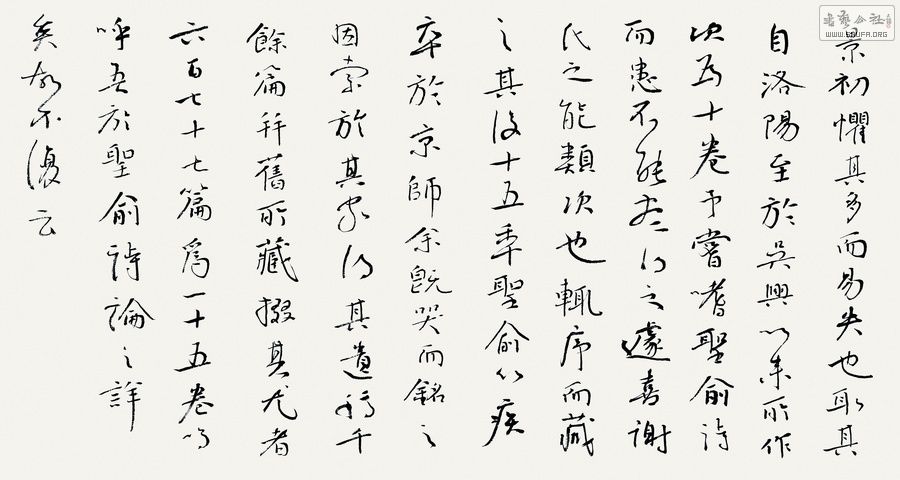 景初懼其多而易失也取其
自洛陽至於吳興以來所作
次為十卷予嘗嗜聖俞詩
而患不能盡得之遽喜謝
氏之能類次也輒序而藏
之其後十五年聖俞以疾
卒於京師余既哭而銘之
因索於其家得其遺稿千
餘篇并舊所藏掇其尤者
六百七十七篇為一十五卷嗚
呼吾於聖俞詩論之詳
矣故不復云
書藝公社
WWW.EDUFA.ORG